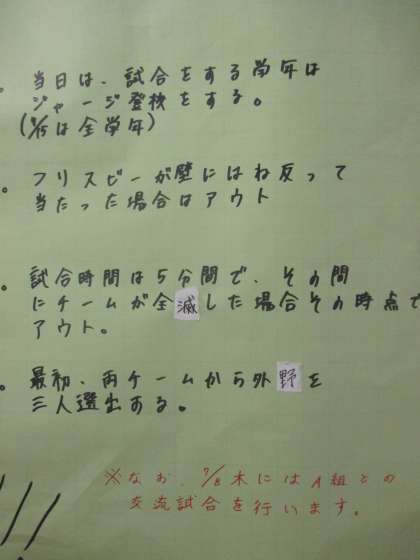 。当日は、試合をする学年は
ジャージ登校をする。
(9/15は全学年)
。フリスビーが壁にはね反って
当たった場合はアウト
。試合時間は5分間で、その間
にチームが全滅した場合その時点で
アウト。
。最初、両チームから外野を
三人選出する。
※なお、7/8木にはA組との
交流試合を行います。